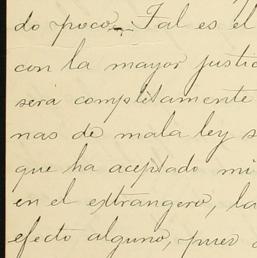 do poco. Tal es el
con la mayor justic
será completamente
nas de mala ley s
que ha aceptado mi
en el extrangero, la
efecto alguno, pues